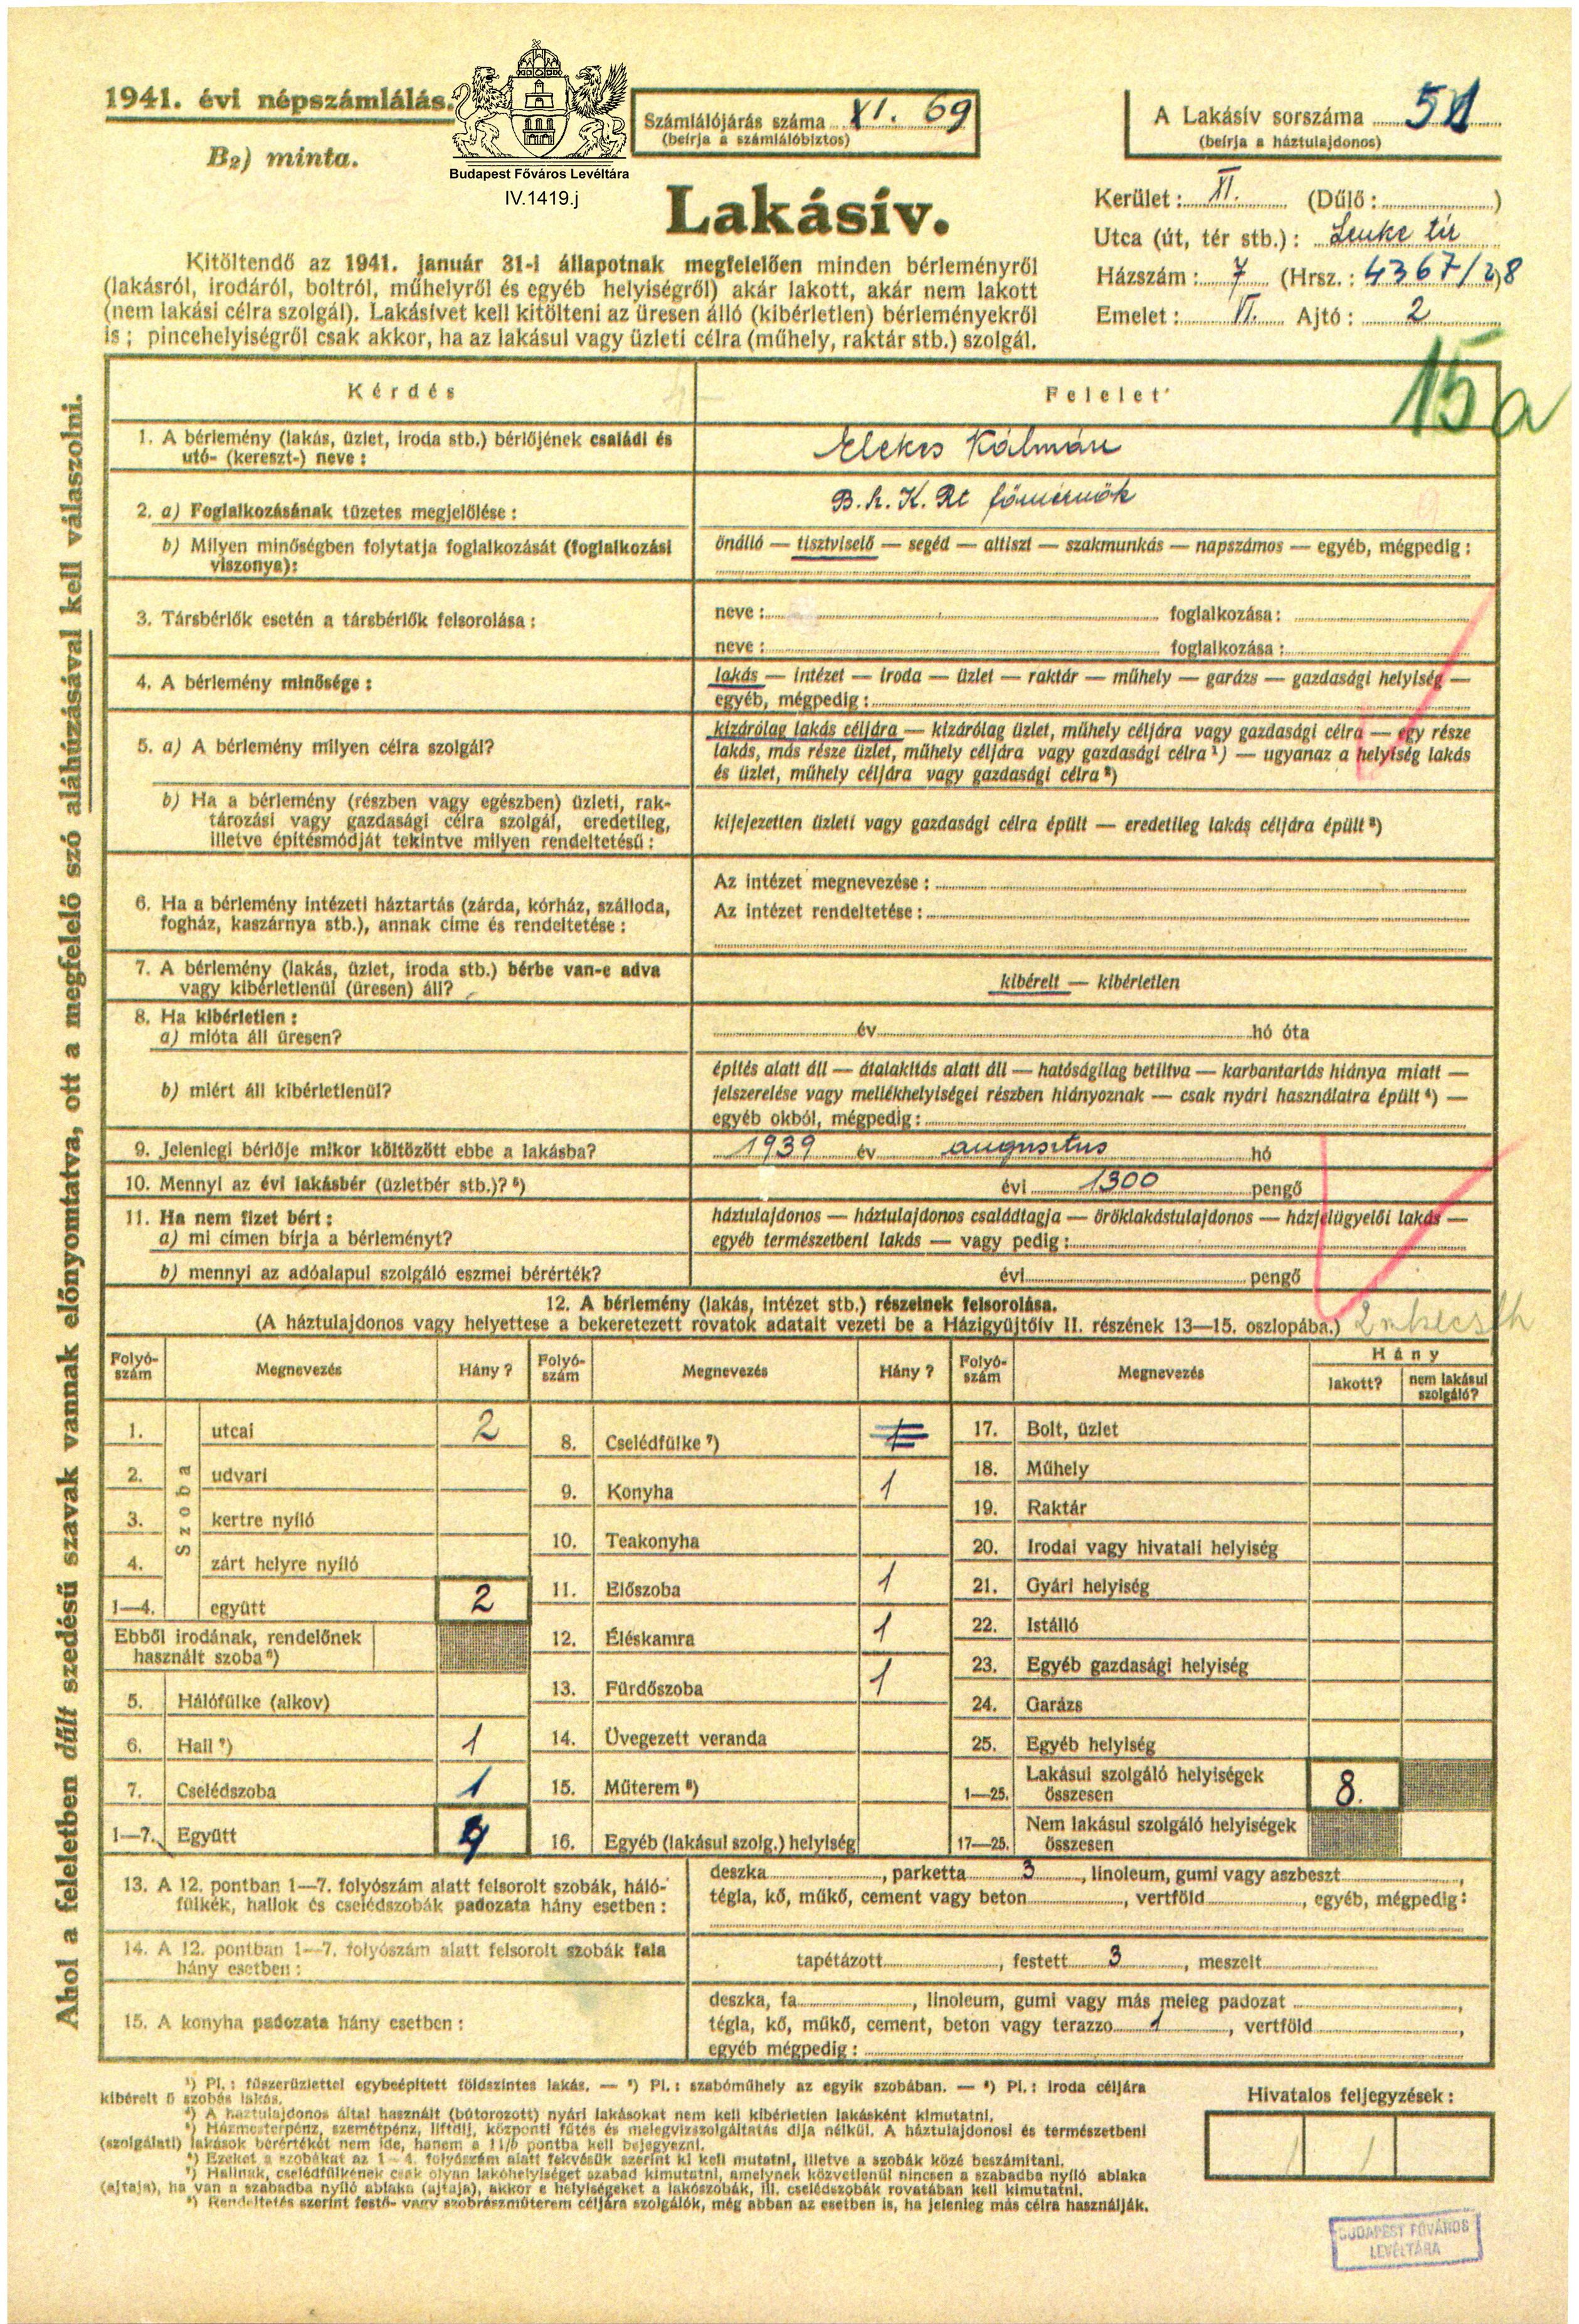 1941. évi népszámlálás.
B₂) minta.
Budapest Főváros Levéltára
IV.1419.j
Számlálójárás száma XI. 69
(beírja a számlálóbiztos)
A Lakásív sorszáma 51
(beírja a háztulajdonos)
Lakásív.
Kerület: XI. (Dűlő: )
Utca (út, tér stb.): Lenke tér
Házszám: 7 (Hrsz.: 4367/28
Emelet: VI. Ajtó: 2
Kitöltendő az 1941. január 31-i állapotnak megfelelően minden bérleményről
(lakásról, irodáról, boltról, műhelyről és egyéb helyiségről) akár lakott, akár nem lakott
(nem lakási célra szolgál). Lakásívet kell kitölteni az üresen álló (kibérletlen) bérleményekről
is; pincehelyiségről csak akkor, ha az lakásul vagy üzleti célra (műhely, raktár stb.) szolgál.
15a
Ahol a feleletben dűlt szedésű szavak vannak előnyomtatva, ott a megfelelő szó aláhúzásával kell válaszolni.
Kérdés
Felelet
1. A bérlemény (lakás, üzlet, iroda stb.) bérlőjének családi és
utó- (kereszt-) neve:
Elekes Kálmán
2. a) Foglalkozásának tüzetes megjelölése:
B. h. K. Rt főmérnök
b) Milyen minőségben folytatja foglalkozását (foglalkozási
viszonya):
önálló — tisztviselő — segéd — altiszt — szakmunkás — napszámos — egyéb, mégpedig:
3. Társbérlők esetén a társbérlők felsorolása:
neve: foglalkozása:
neve: foglalkozása:
4. A bérlemény minősége:
lakás — intézet — iroda — üzlet — raktár — műhely — garázs — gazdasági helyiség —
egyéb, mégpedig:
5. a) A bérlemény milyen célra szolgál?
kizárólag lakás céljára — kizárólag üzlet, műhely céljára vagy gazdasági célra — egy része
lakás, más része üzlet, műhely céljára vagy gazdasági célra ¹) — ugyanaz a helyiség lakás
és üzlet, műhely céljára vagy gazdasági célra ²)
b) Ha a bérlemény (részben vagy egészben) üzleti, rak-
tározási vagy gazdasági célra szolgál, eredetileg,
illetve építésmódját tekintve milyen rendeltetésű:
kifejezetten üzleti vagy gazdasági célra épült — eredetileg lakás céljára épült ³)
6. Ha a bérlemény intézeti háztartás (zárda, kórház, szálloda,
fogház, kaszárnya stb.), annak címe és rendeltetése:
Az intézet megnevezése:
Az intézet rendeltetése:
7. A bérlemény (lakás, üzlet, iroda stb.) bérbe van-e adva
vagy kibérletlenül (üresen) áll?
kibérelt — kibérletlen
8. Ha kibérletlen:
a) mióta áll üresen?
év hó óta
b) miért áll kibérletlenül?
építés alatt áll — átalakítás alatt áll — hatóságilag betiltva — karbantartás hiánya miatt —
felszerelése vagy mellékhelyiségei részben hiányoznak — csak nyári használatra épült ⁴) —
egyéb okból, mégpedig:
9. Jelenlegi bérlője mikor költözött ebbe a lakásba?
1939 év augusztus hó
10. Mennyi az évi lakásbér (üzletbér stb.)? ⁵)
évi 1300 pengő
11. Ha nem fizet bért:
a) mi címen bírja a bérleményt?
háztulajdonos — háztulajdonos családtagja — öröklakástulajdonos — házfelügyelői lakás —
egyéb természetbeni lakás — vagy pedig:
b) mennyi az adóalapul szolgáló eszmei bérérték?
évi pengő
12. A bérlemény (lakás, intézet stb.) részeinek felsorolása.
(A háztulajdonos vagy helyettese a bekeretezett rovatok adatait vezeti be a Házigyűjtőív II. részének 13—15. oszlopába.)
Folyó-szám Megnevezés Hány? Folyó-szám Megnevezés Hány? Folyó-szám Megnevezés Hány
lakott? nem lakásul szolgáló?
Szoba
1. utcai 2
2. udvari
3. kertre nyíló
4. zárt helyre nyíló
1—4. együtt 2
Ebből irodának, rendelőnek
használt szoba ⁶)
5. Hálófülke (alkov)
6. Hall ⁷) 1
7. Cselédszoba 1
1—7. Együtt 4
8. Cselédfülke ⁷) 1
9. Konyha 1
10. Teakonyha
11. Előszoba 1
12. Éléskamra 1
13. Fürdőszoba 1
14. Üvegezett veranda
15. Műterem ⁸)
16. Egyéb (lakásul szolg.) helyiség
17. Bolt, üzlet
18. Műhely
19. Raktár
20. Irodai vagy hivatali helyiség
21. Gyári helyiség
22. Istálló
23. Egyéb gazdasági helyiség
24. Garázs
25. Egyéb helyiség
1—25. Lakásul szolgáló helyiségek
összesen 8.
17—25. Nem lakásul szolgáló helyiségek
összesen
13. A 12. pontban 1—7. folyószám alatt felsorolt szobák, háló-
fülkék, hallok és cselédszobák padozata hány esetben:
deszka , parketta 3 , linoleum, gumi vagy aszbeszt ,
tégla, kő, műkő, cement vagy beton , vertföld , egyéb, mégpedig:
14. A 12. pontban 1—7. folyószám alatt felsorolt szobák fala
hány esetben:
tapétázott , festett 3 , meszelt
15. A konyha padozata hány esetben:
deszka, fa , linoleum, gumi vagy más meleg padozat ,
tégla, kő, műkő, cement, beton vagy terazzo 1 , vertföld ,
egyéb mégpedig:
¹) Pl.: fűszerüzlettel egybeépített földszintes lakás. — ²) Pl.: szabóműhely az egyik szobában. — ³) Pl.: iroda céljára
kibérelt 5 szobás lakás.
⁴) A háztulajdonos által használt (bútorozott) nyári lakásokat nem kell kibérletlen lakásként kimutatni.
⁵) Házmesterpénz, szemétpénz, liftdíj, központi fűtés és melegvízszolgáltatás díja nélkül. A háztulajdonosi és természetbeni
(szolgálati) lakások bérértékét nem ide, hanem a 11/b pontba kell bejegyezni.
⁶) Ezeket a szobákat az 1—4. folyószám alatt fekvésük szerint ki kell mutatni, illetve a szobák közé beszámítani.
⁷) Hallnak, cselédfülkének csak olyan lakóhelyiséget szabad kimutatni, amelynek közvetlenül nincsen a szabadba nyíló ablaka
(ajtaja), ha van a szabadba nyíló ablaka (ajtaja), akkor e helyiségeket a lakószobák, ill. cselédszobák rovatában kell kimutatni.
⁸) Rendeltetés szerint festő- vagy szobrászműterem céljára szolgálók, még abban az esetben is, ha jelenleg más célra használják.
Hivatalos feljegyzések:
BUDAPEST FŐVÁROS
LEVÉLTÁRA